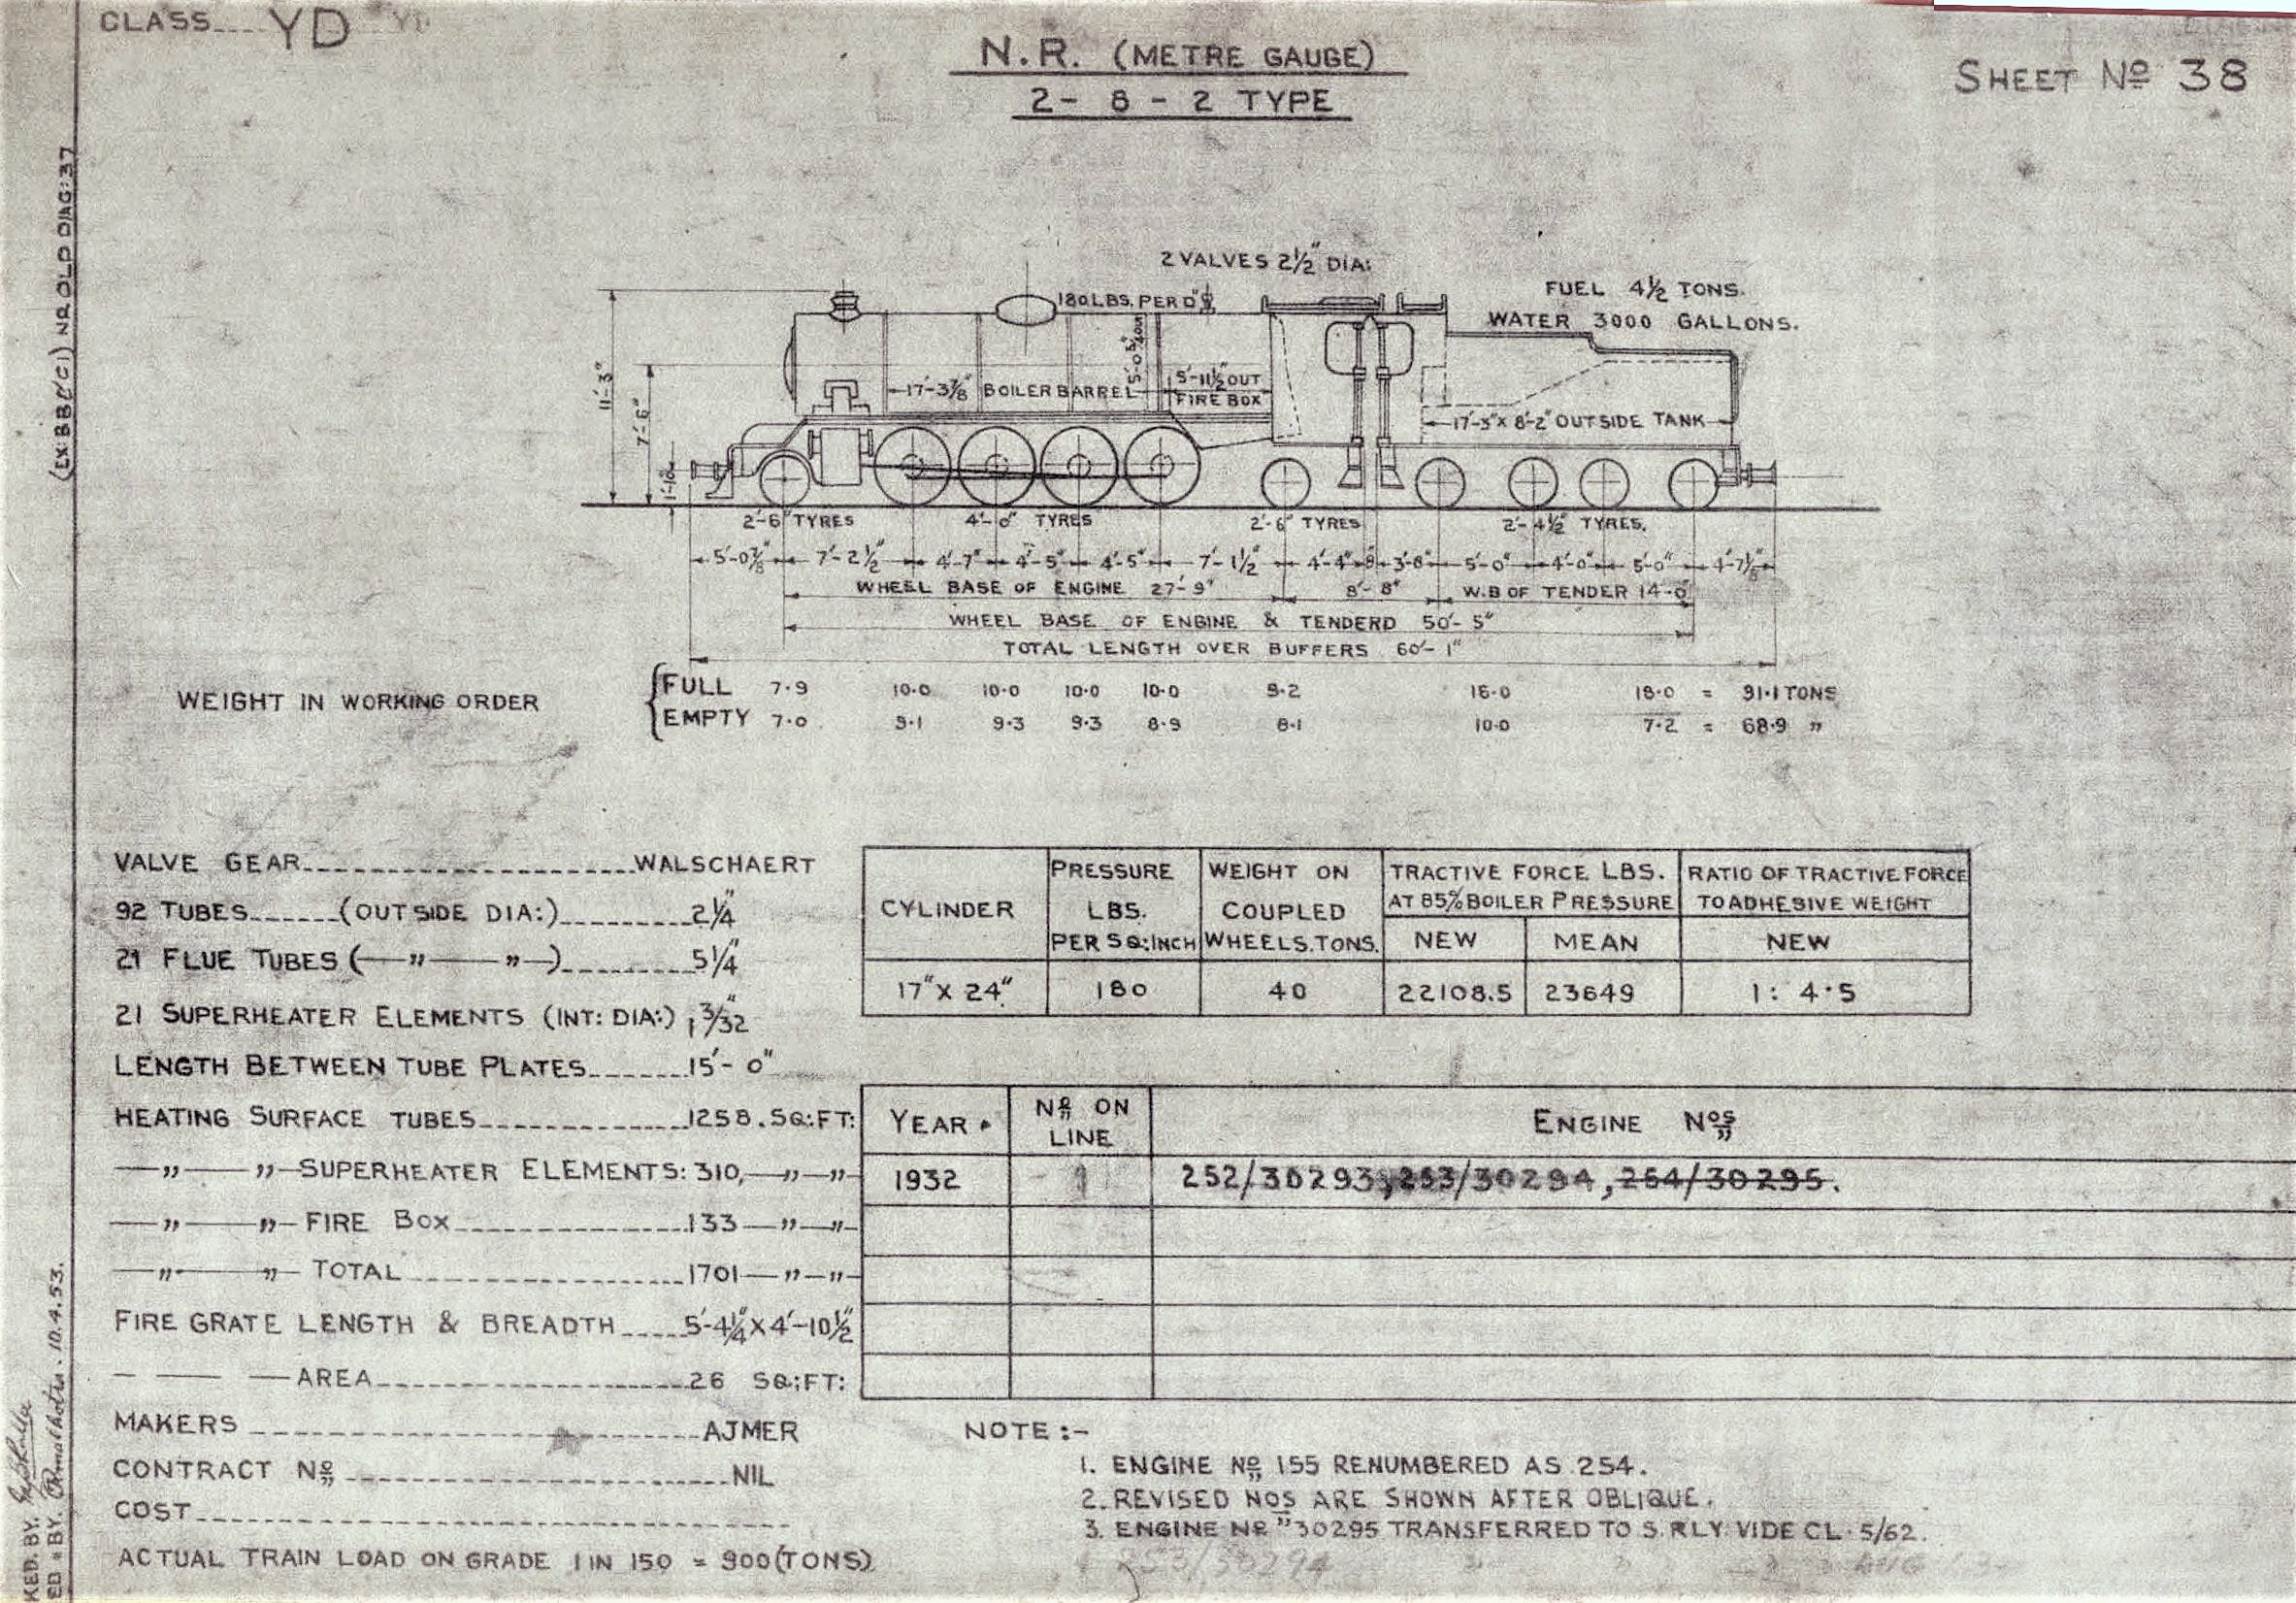 CLASS.... YD
N.R. (METRE GAUGE)
2- 8 - 2 TYPE
SHEET Nº 38
(EX: BB & C.I) N.R. OLD DIAG: 37
2 VALVES 2½" DIA:
180 LBS. PER □"
FUEL 4½ TONS.
WATER 3000 GALLONS.
11'-3"
7'-6"
17'-3⅜" BOILER BARREL
5'-11½ OUT
FIRE BOX
17'-3" X 8'-2" OUTSIDE TANK
2'-6" TYRES
4'-0" TYRES
2'-6" TYRES
2'-4½" TYRES.
5'-0⅞" 7'-2½" 4'-7" 4'-5" 4'-5" 7'-1½" 4'-4" 8" 3'-8" 5'-0" 4'-0" 5'-0" 4'-7⅛"
WHEEL BASE OF ENGINE 27'-9"
8'-8"
W.B OF TENDER 14-0"
WHEEL BASE OF ENGINE & TENDERD 50'-5"
TOTAL LENGTH OVER BUFFERS 60'-1"
WEIGHT IN WORKING ORDER
FULL 7.9 10.0 10.0 10.0 10.0 9.2 16.0 18.0 = 91.1 TONS
EMPTY 7.0 9.1 9.3 9.3 8.9 8.1 10.0 7.2 = 68.9 "
VALVE GEAR WALSCHAERT
92 TUBES (OUTSIDE DIA:) 2¼"
21 FLUE TUBES (—"—"—) 5¼"
21 SUPERHEATER ELEMENTS (INT: DIA:) 1 3/32"
LENGTH BETWEEN TUBE PLATES 15'- 0"
HEATING SURFACE TUBES 1258. SQ:FT:
—"— "—SUPERHEATER ELEMENTS: 310,—"—"—
—"— "—FIRE BOX 133—"—"—
—"— "—TOTAL 1701—"—"—
FIRE GRATE LENGTH & BREADTH 5'-4¼" X 4'-10½"
— — —AREA 26 SQ:FT:
MAKERS AJMER
CONTRACT Nº NIL
COST
ACTUAL TRAIN LOAD ON GRADE 1 IN 150 = 900 (TONS)
CYLINDER
PRESSURE
LBS.
PER SQ:INCH
WEIGHT ON
COUPLED
WHEELS.TONS.
TRACTIVE FORCE LBS.
AT 85% BOILER PRESSURE
NEW MEAN
RATIO OF TRACTIVE FORCE
TO ADHESIVE WEIGHT
NEW
17" X 24" 180 40 22108.5 23649 1: 4.5
YEAR
Nº ON
LINE
ENGINE Nos
1932 1 252/30293, 253/30294, 254/30295.
NOTE :-
1. ENGINE Nº 155 RENUMBERED AS 254.
2. REVISED NOS ARE SHOWN AFTER OBLIQUE.
3. ENGINE Nº 30295 TRANSFERRED TO S. RLY. VIDE CL. 5/62.
253/30294
KED. BY.
ED. BY. 10.4.53.